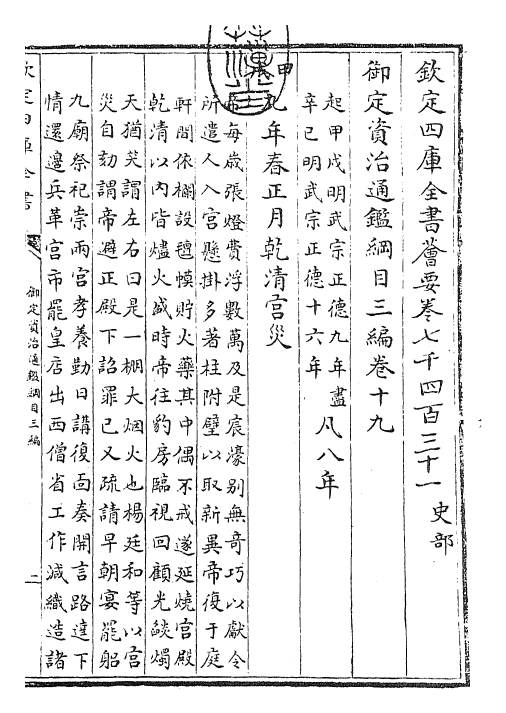 欽定四庫全書薈要卷七千四百三十一 史部
御定資治通鑑綱目三編卷十九
起甲戌明武宗正德九年盡
辛巳明武宗正德十六年
凡八年
甲
戌九年春正月乾清宫災
帝每歲張燈費浮數萬及是宸濠别無奇巧以獻令
所遣人入宫懸掛多著柱附壁以取新異帝復于庭
軒間依欄設氊幙貯火藥其中偶不戒遂延燒宫殿
乾清以内皆燼火盛時帝往豹房臨視回顧光燄燭
天猶笑謂左右曰是一棚大烟火也楊廷和等以宫
災自劾謂帝避正殿下詔罪已又疏請早朝宴罷躬
九廟祭祀崇兩宫孝養勤日講復面奏開言路達下
情還邊兵革宫市罷皇店出西僧省工作減織造諸
欽定四庫全書
御定資治通鑑綱目三編